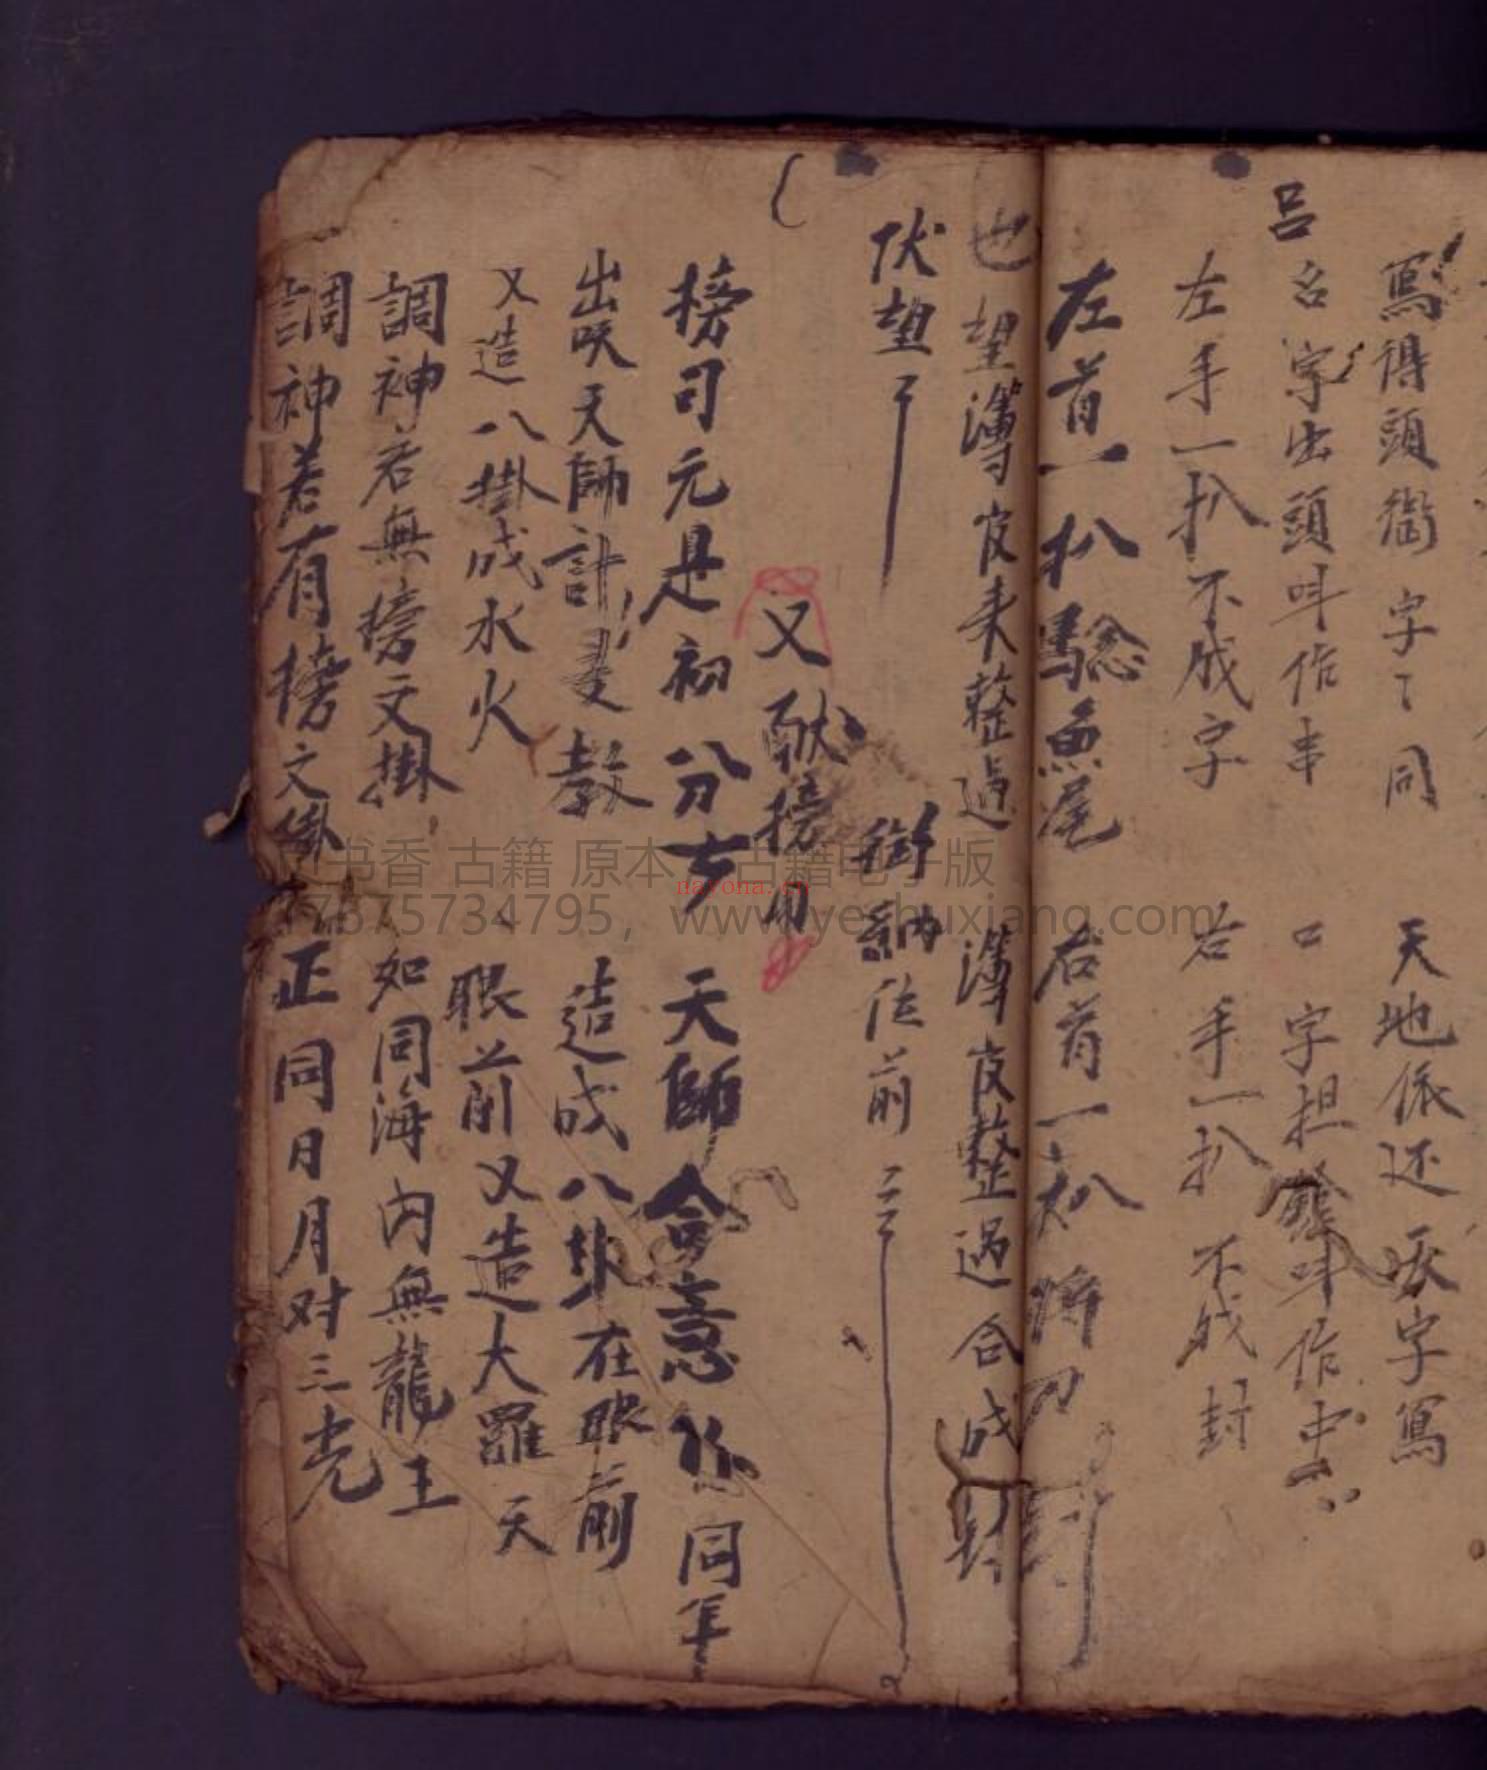 寫得頭銜字〻同 天地依还 字寫
呂
名字出頭叫作串 口字担 叫作中
左手一扒不成字 右手一扒不成封
左首一扒騐魚尾 右首一扒 刀 
也望薄皮来整過 薄皮整過合成封
伏望 納位前
又献榜用
榜司元是初分 天師合意 同年
出 天師計 教 造成八卦在眼前
又造八掛成水火 眼前又造大羅天
調神若無榜文掛 如同海内無龍王
調神若有榜文掛 正同日月对三光
书香 古籍 原本 古籍电子版
17875734795，www.yeshuxiang.com
nayona.cn